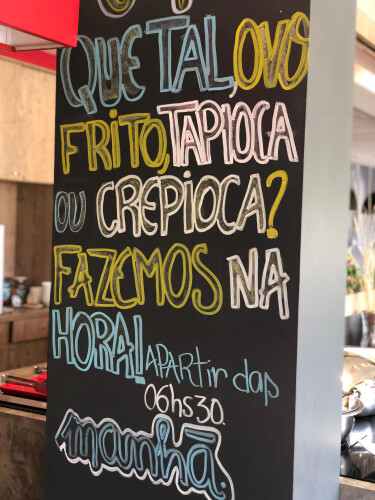 QUE TAL, OVO
FRITO, TAPIOCA
OU CREPIOCA?
FAZEMOS NA
HORA! APARTIR dAP
06hs30.
manhã.